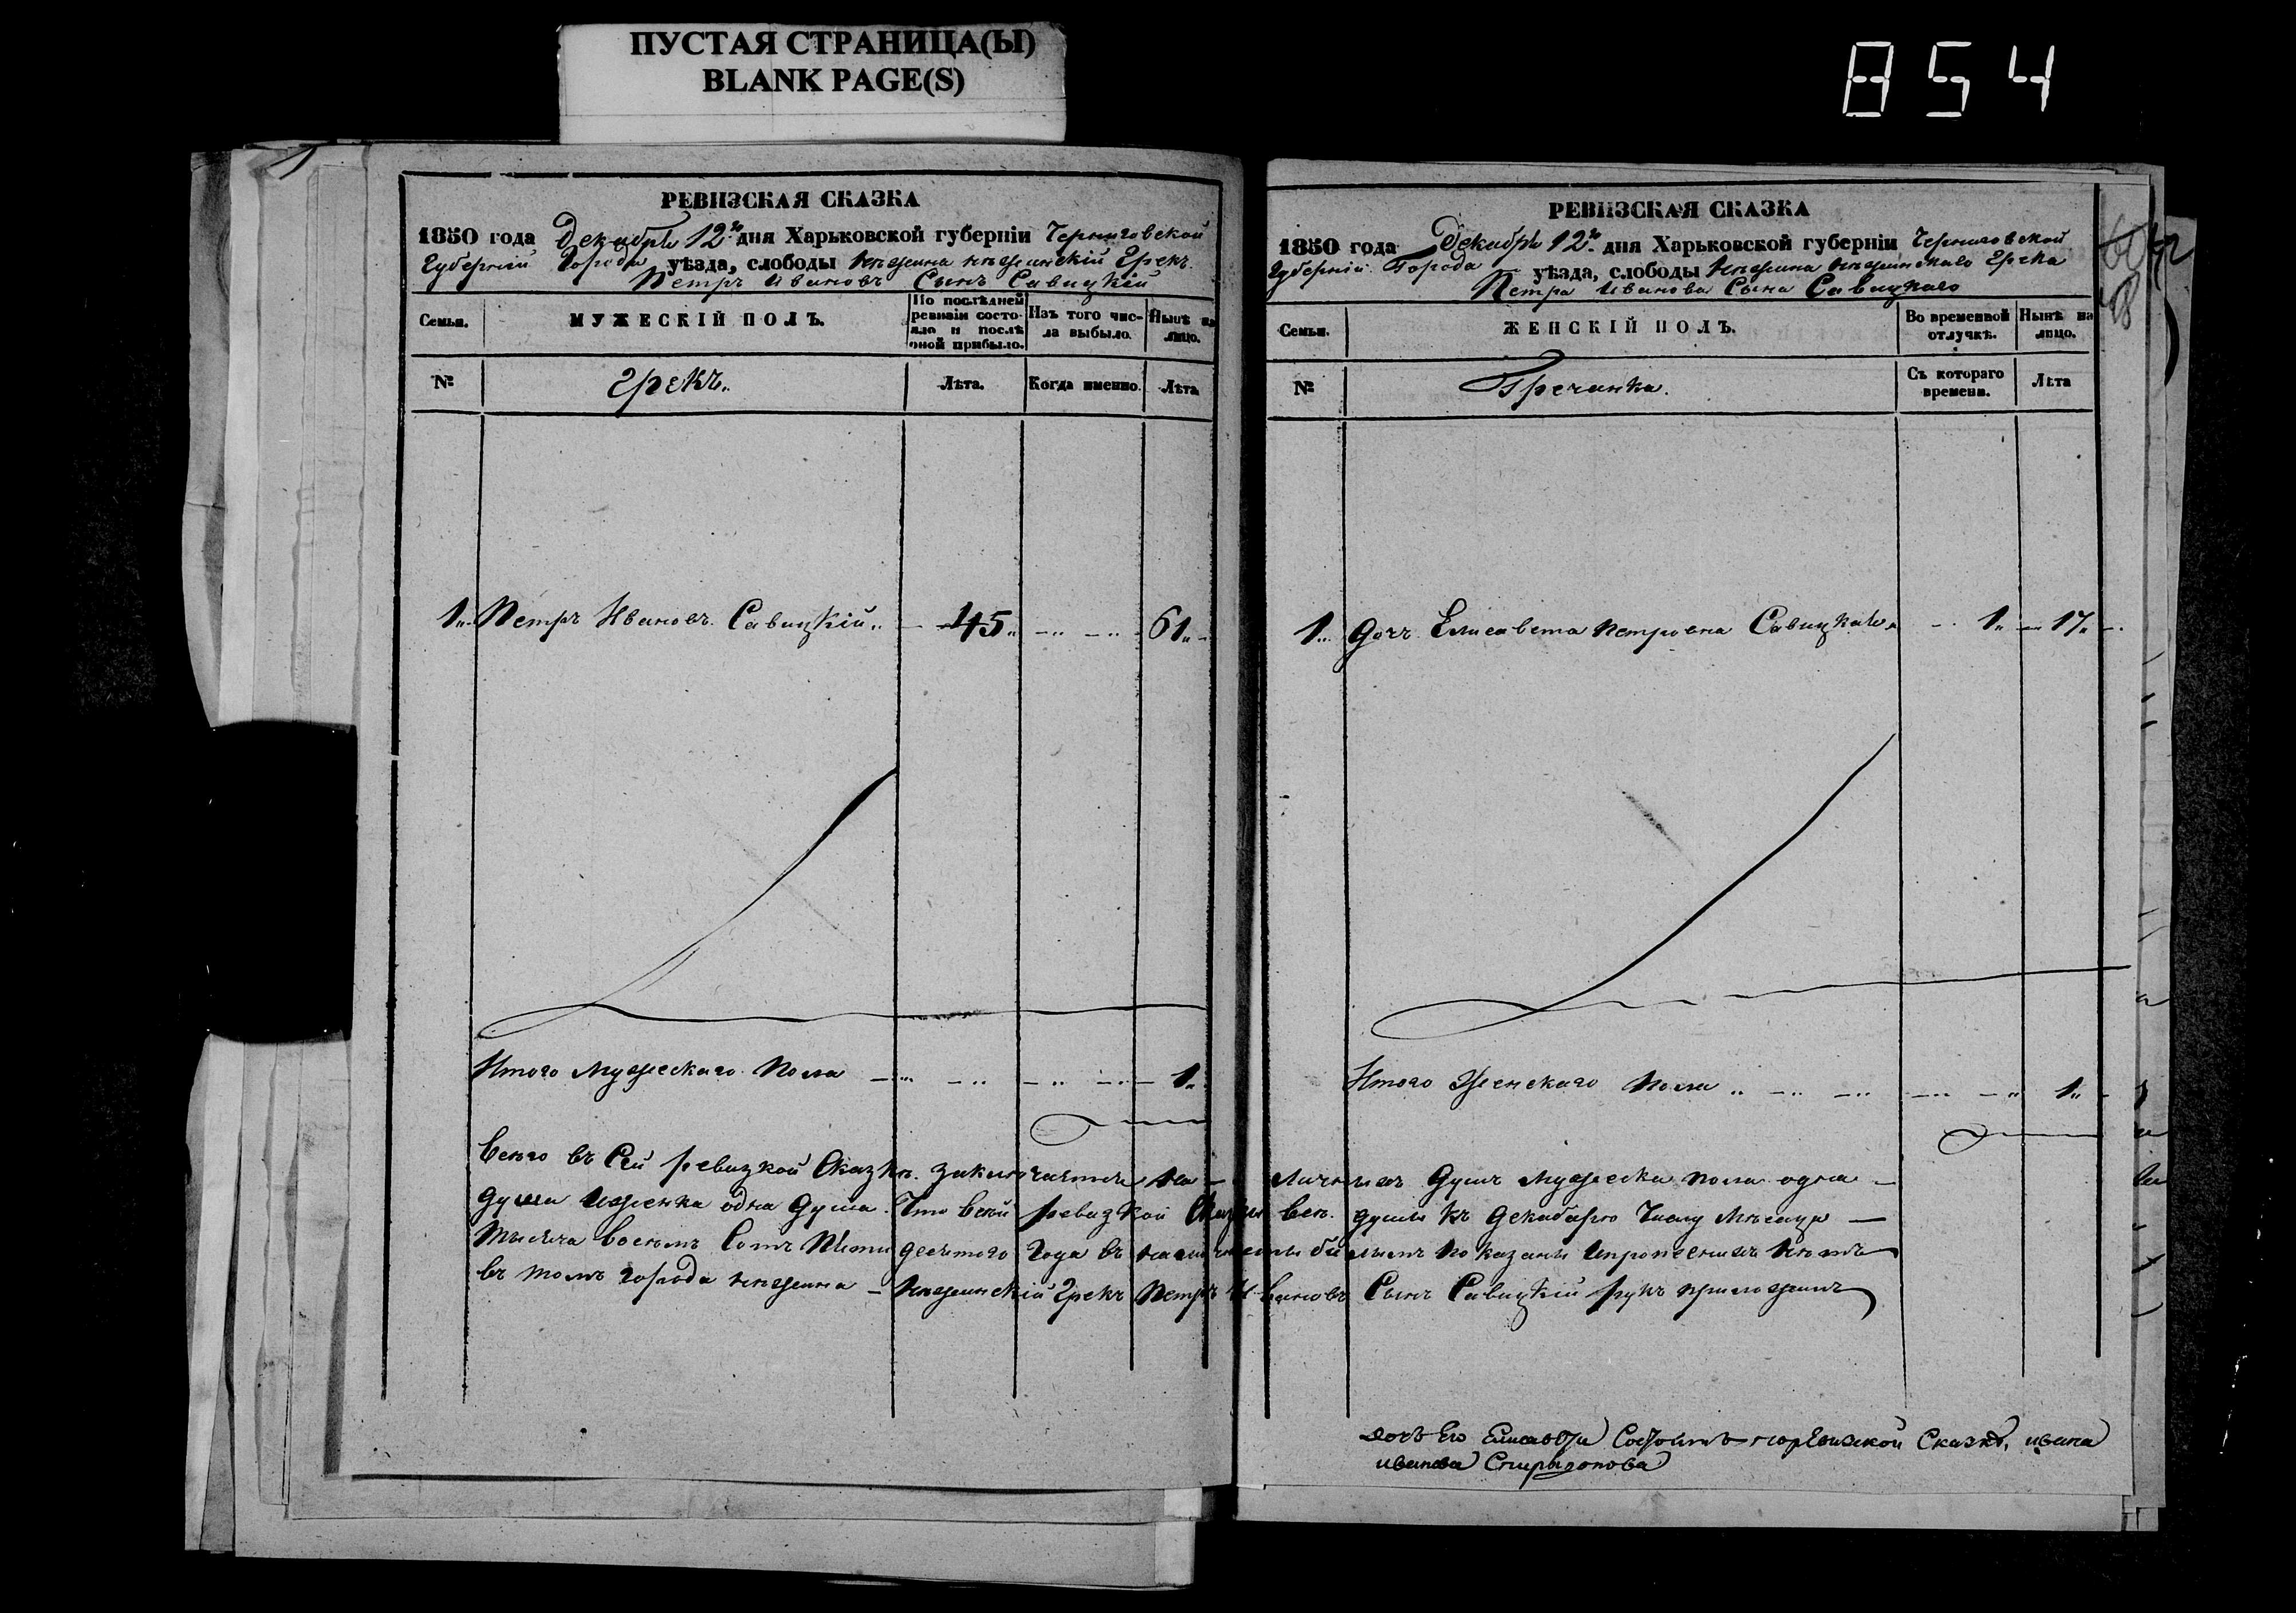 ПУСТАЯ СТРАНИЦА(Ы)
BLANK PAGE(S)
854
РЕВИЗСКАЯ СКАЗКА
1850 года Декабря 12го дня Харьковской губерніи Черниговской
Губерній Города уѣзда, слободы Нѣжина нѣжинскій Грекъ
Петръ Ивановъ Сынъ Савицкій
Семьи.
МУЖЕСКІЙ ПОЛЪ.
По послѣдней ревизіи состояло и послѣ оной прибыло.
Изъ того числа выбыло.
Нынѣ на лицо.
№
Грекъ.
Лѣта.
Когда именно.
Лѣта
1. Петръ Ивановъ Савицкій 45 61
Итого Мужескаго пола 1
РЕВИЗСКАЯ СКАЗКА
1850 года Декабря 12го дня Харьковской губерніи Черниговской
Губерніи Города уѣзда, слободы Нѣжина Нѣжинскаго Грека
Петра Иванова Сына Савицкаго
Семьи.
ЖЕНСКІЙ ПОЛЪ.
Во временной отлучкѣ.
Нынѣ на лицо.
№
Гречанка.
Съ котораго времени.
Лѣта
1. дочь Елисавета Петровна 1 17
Итого Женскаго пола 1
Всего въ Сей ревизкой Сказкѣ заключается на личныхъ душъ Мужеска пола одна
душа иженка одна душа. Что всей ревизкой Сказки все души къ декабарю Числу Мѣсаца
Тысяча Восемъ Сотъ Пѣти десятого Года въ показаны
въ томъ города нѣжина Нѣжинскій Грекъ Петръ Ивановъ Сынъ Савицкій рукъ приложилъ
дочь Его Состоитъ Сказкѣ, ивана
иванова Спиридонова